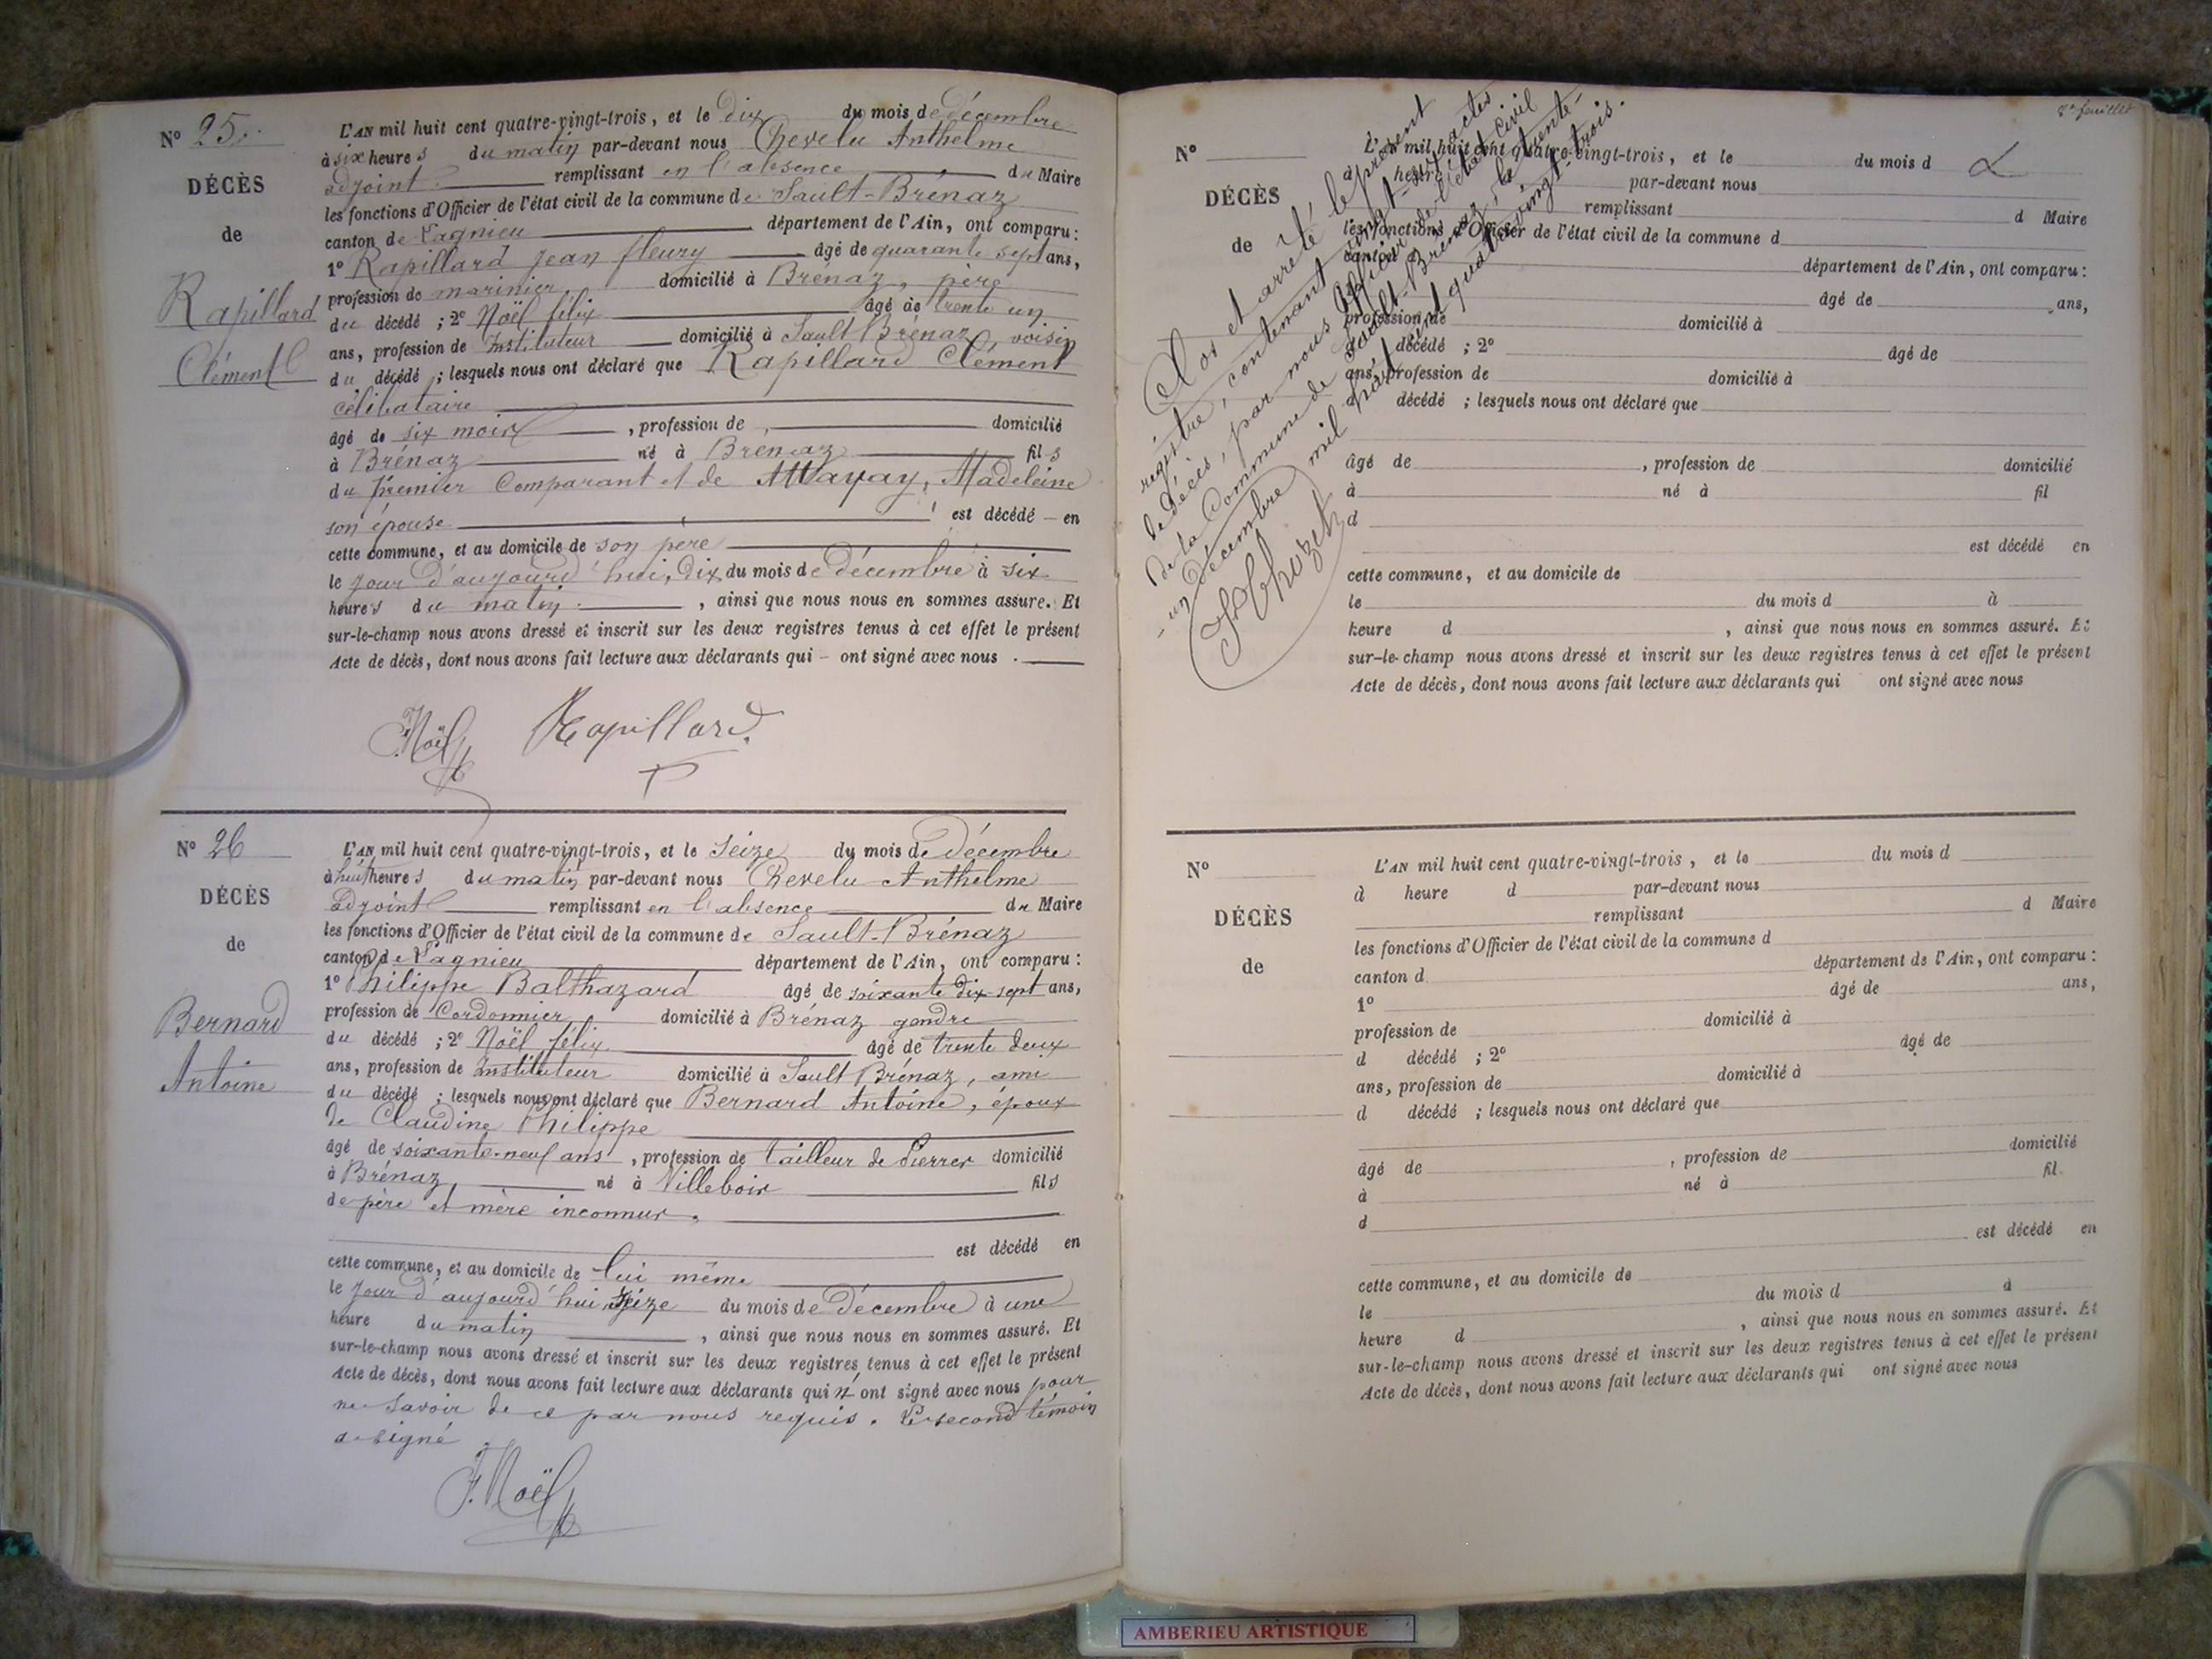 N° 25.
DÉCÈS
de
Rapillard
Clément
L'AN mil huit cent quatre-vingt-trois, et le dix du mois de décembre
à six heures du matin par-devant nous Chevelu Anthelme
adjoint remplissant en l'absence du Maire
les fonctions d'Officier de l'état civil de la commune de Sault-Brénaz
canton de Lagnieu département de l'Ain, ont comparu :
1° Rapillard Jean fleury âgé de quarante sept ans,
profession de marinier domicilié à Brénaz, père
du décédé ; 2° Noël félix âgé de trente un
ans, profession de Instituteur domicilié à Sault Brénaz, voisin
du décédé ; lesquels nous ont déclaré que Rapillard Clément
célibataire
âgé de six mois, profession de domicilié
à Brénaz né à Brénaz fils
du premier Comparant et de Madeleine
son épouse est décédé en
cette commune, et au domicile de son père
le jour d'aujourd'hui, dix du mois de décembre à six
heures du matin, ainsi que nous nous en sommes assuré. Et
sur-le-champ nous avons dressé et inscrit sur les deux registres tenus à cet effet le présent
Acte de décès, dont nous avons fait lecture aux déclarants qui - ont signé avec nous.
F. Noël Rapillard
N° 26
DÉCÈS
de
Bernard
Antoine
L'AN mil huit cent quatre-vingt-trois, et le Seize du mois de décembre
à huit heures du matin par-devant nous Chevelu Anthelme
adjoint remplissant en l'absence du Maire
les fonctions d'Officier de l'état civil de la commune de Sault-Brénaz
canton de Lagnieu département de l'Ain, ont comparu :
1° Philippe Balthazard âgé de soixante dix-sept ans,
profession de Cordonnier domicilié à Brénaz gendre
du décédé ; 2° Noël félix âgé de trente deux
ans, profession de Instituteur domicilié à Sault Brénaz, ami
du décédé ; lesquels nous ont déclaré que Bernard Antoine, époux
de Claudine Philippe
âgé de soixante-neuf ans, profession de tailleur de Pierres domicilié
à Brénaz, né à Villebois fils
de père et mère inconnus,
est décédé en
cette commune, et au domicile de lui même
le jour d'aujourd'hui Seize du mois de décembre à une
heure du matin, ainsi que nous nous en sommes assuré. Et
sur-le-champ nous avons dressé et inscrit sur les deux registres tenus à cet effet le présent
Acte de décès, dont nous avons fait lecture aux déclarants qui n'ont signé avec nous pour
ne savoir de ce par nous requis. Le second témoin
a signé
F. Noël
8e feuillet
Clos et arrêté le présent
registre, contenant vingt-six actes
de décès, par nous Officier de l'état civil
de la Commune de Sault-Brénaz, le trente-
-un Décembre mil huit cent quatre vingt-trois.
N°
DÉCÈS
de
L'AN mil huit cent quatre-vingt-trois, et le du mois d
à heure par-devant nous
remplissant d Maire
les fonctions d'Officier de l'état civil de la commune d
canton d département de l'Ain, ont comparu :
âgé de ans,
profession de domicilié à
d décédé ; 2° âgé de
ans, profession de domicilié à
d décédé ; lesquels nous ont déclaré que
âgé de , profession de domicilié
à né à fil
d
est décédé en
cette commune, et au domicile de
le du mois d à
heure d , ainsi que nous nous en sommes assuré. Et
sur-le-champ nous avons dressé et inscrit sur les deux registres tenus à cet effet le présent
Acte de décès, dont nous avons fait lecture aux déclarants qui ont signé avec nous
N°
DÉCÈS
de
L'AN mil huit cent quatre-vingt-trois, et le du mois d
à heure d par-devant nous
remplissant d Maire
les fonctions d'Officier de l'état civil de la commune d
canton d département de l'Ain, ont comparu :
1° âgé de ans,
profession de domicilié à
d décédé ; 2° âgé de
ans, profession de domicilié à
d décédé ; lesquels nous ont déclaré que
âgé de , profession de domicilié
à né à fil
d
est décédé en
cette commune, et au domicile de
le du mois d à
heure d , ainsi que nous nous en sommes assuré. Et
sur-le-champ nous avons dressé et inscrit sur les deux registres tenus à cet effet le présent
Acte de décès, dont nous avons fait lecture aux déclarants qui ont signé avec nous
AMBERIEU ARTISTIQUE